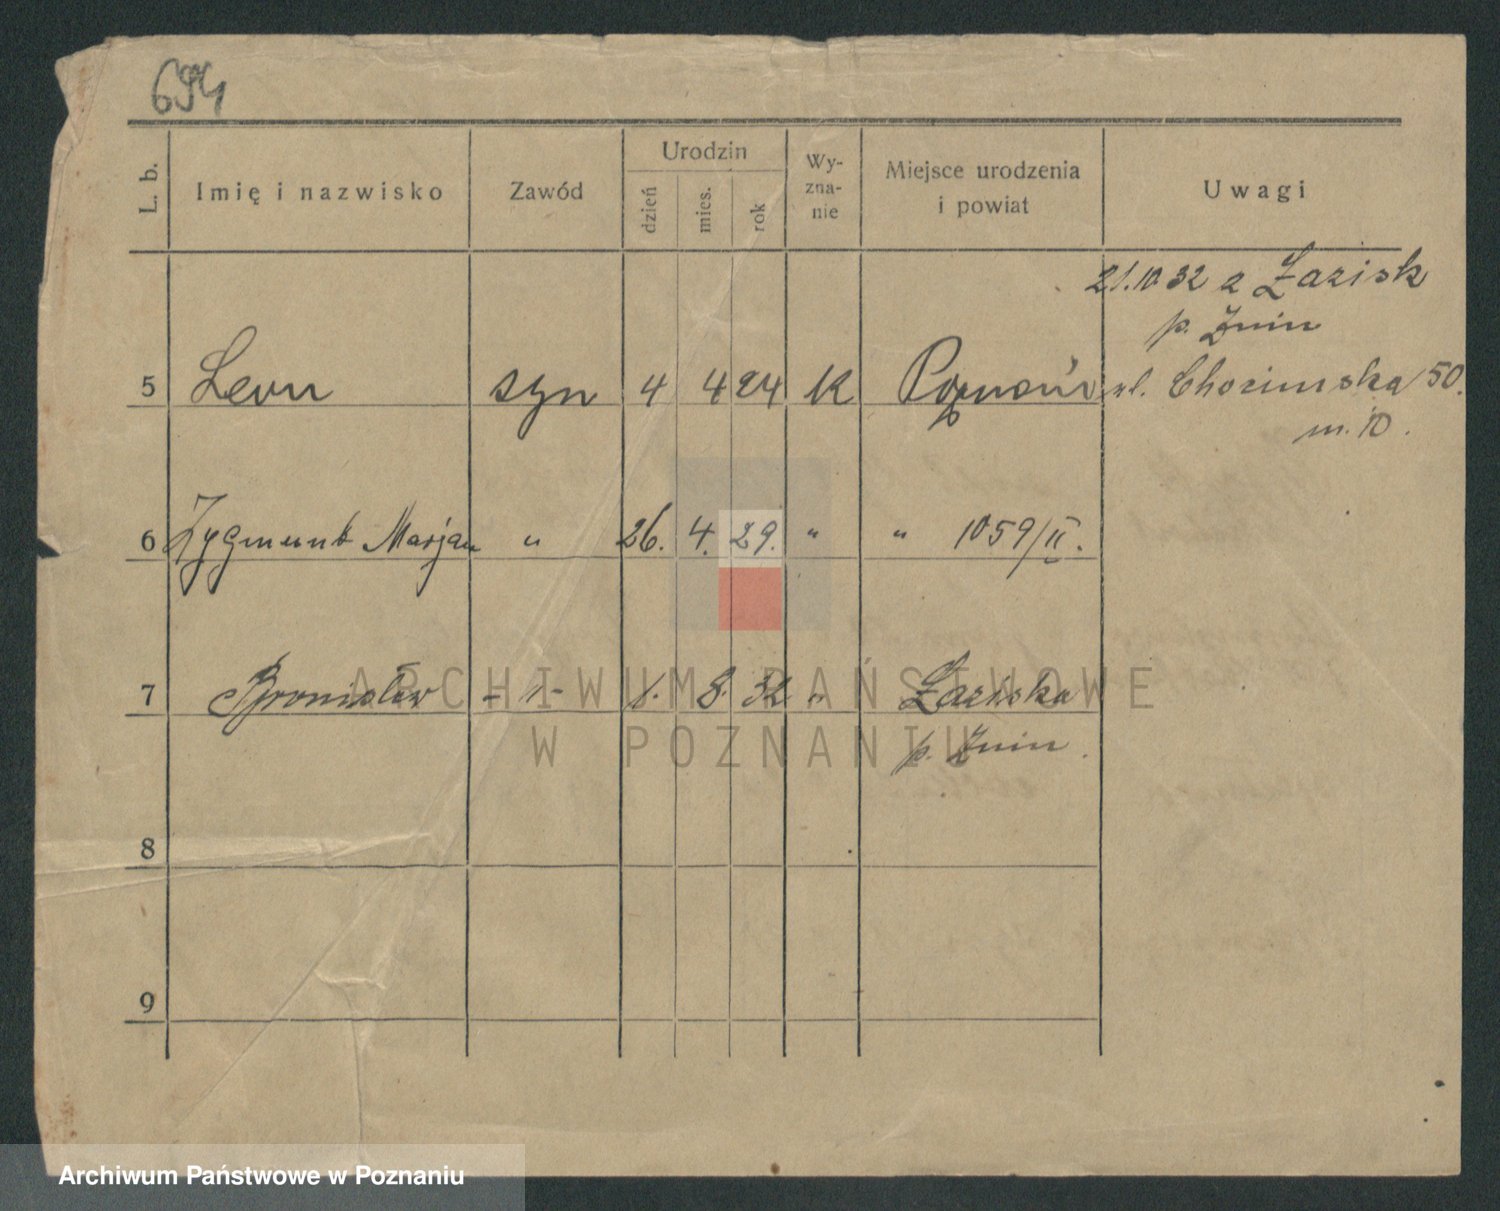 694
L. b. Imię i nazwisko Zawód Urodzin dzień mies. rok Wy-zna-nie Miejsce urodzenia i powiat Uwagi
21.10 32 z Łazisk
p. Żnin
5 Leon syn 4 4 24 K Poznań ul. Chocimska 50.
m. 10.
6 Zygmunt Marjan " 26. 4. 29. " " 1059/II.
7 Bronisław - " - 1. 8. 32 " Łaziska
p. Żnin.
8
9
ARCHIWUM PAŃSTWOWE
W POZNANIU
Archiwum Państwowe w Poznaniu